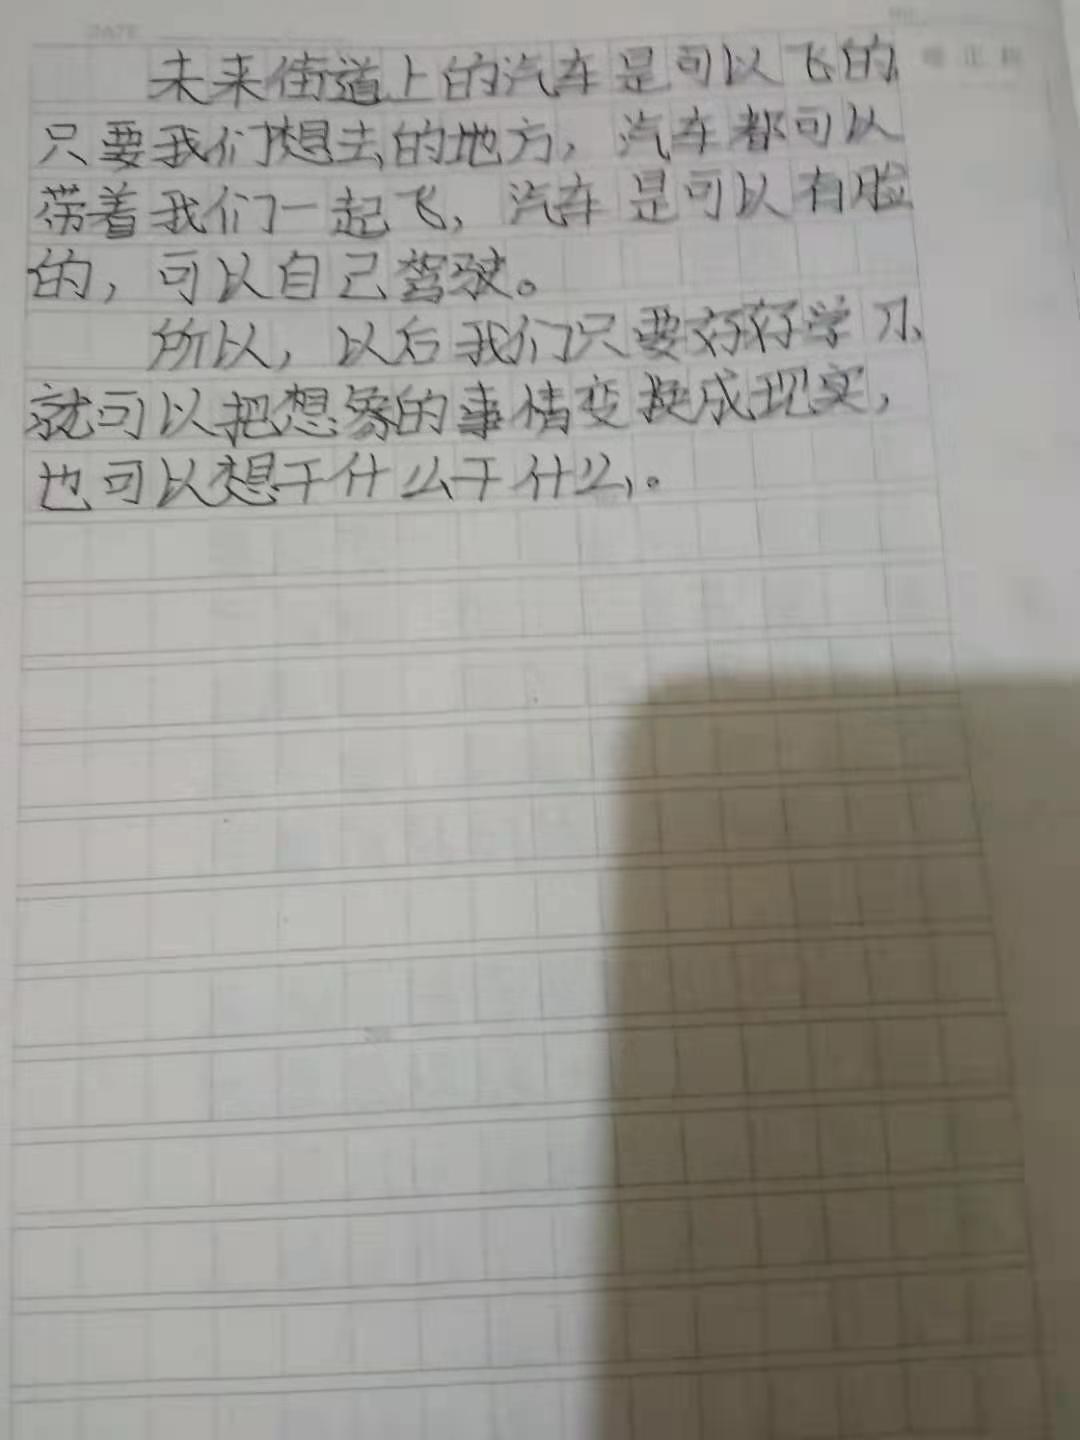 DATE
未来街道上的汽车是可以飞的,
只要我们想去的地方，汽车都可以
带着我们一起飞，汽车是可以有脸
的，可以自己驾驶。
所以，以后我们只要好好学习,
就可以把想象的事情变换成现实，
也可以想干什么干什么。